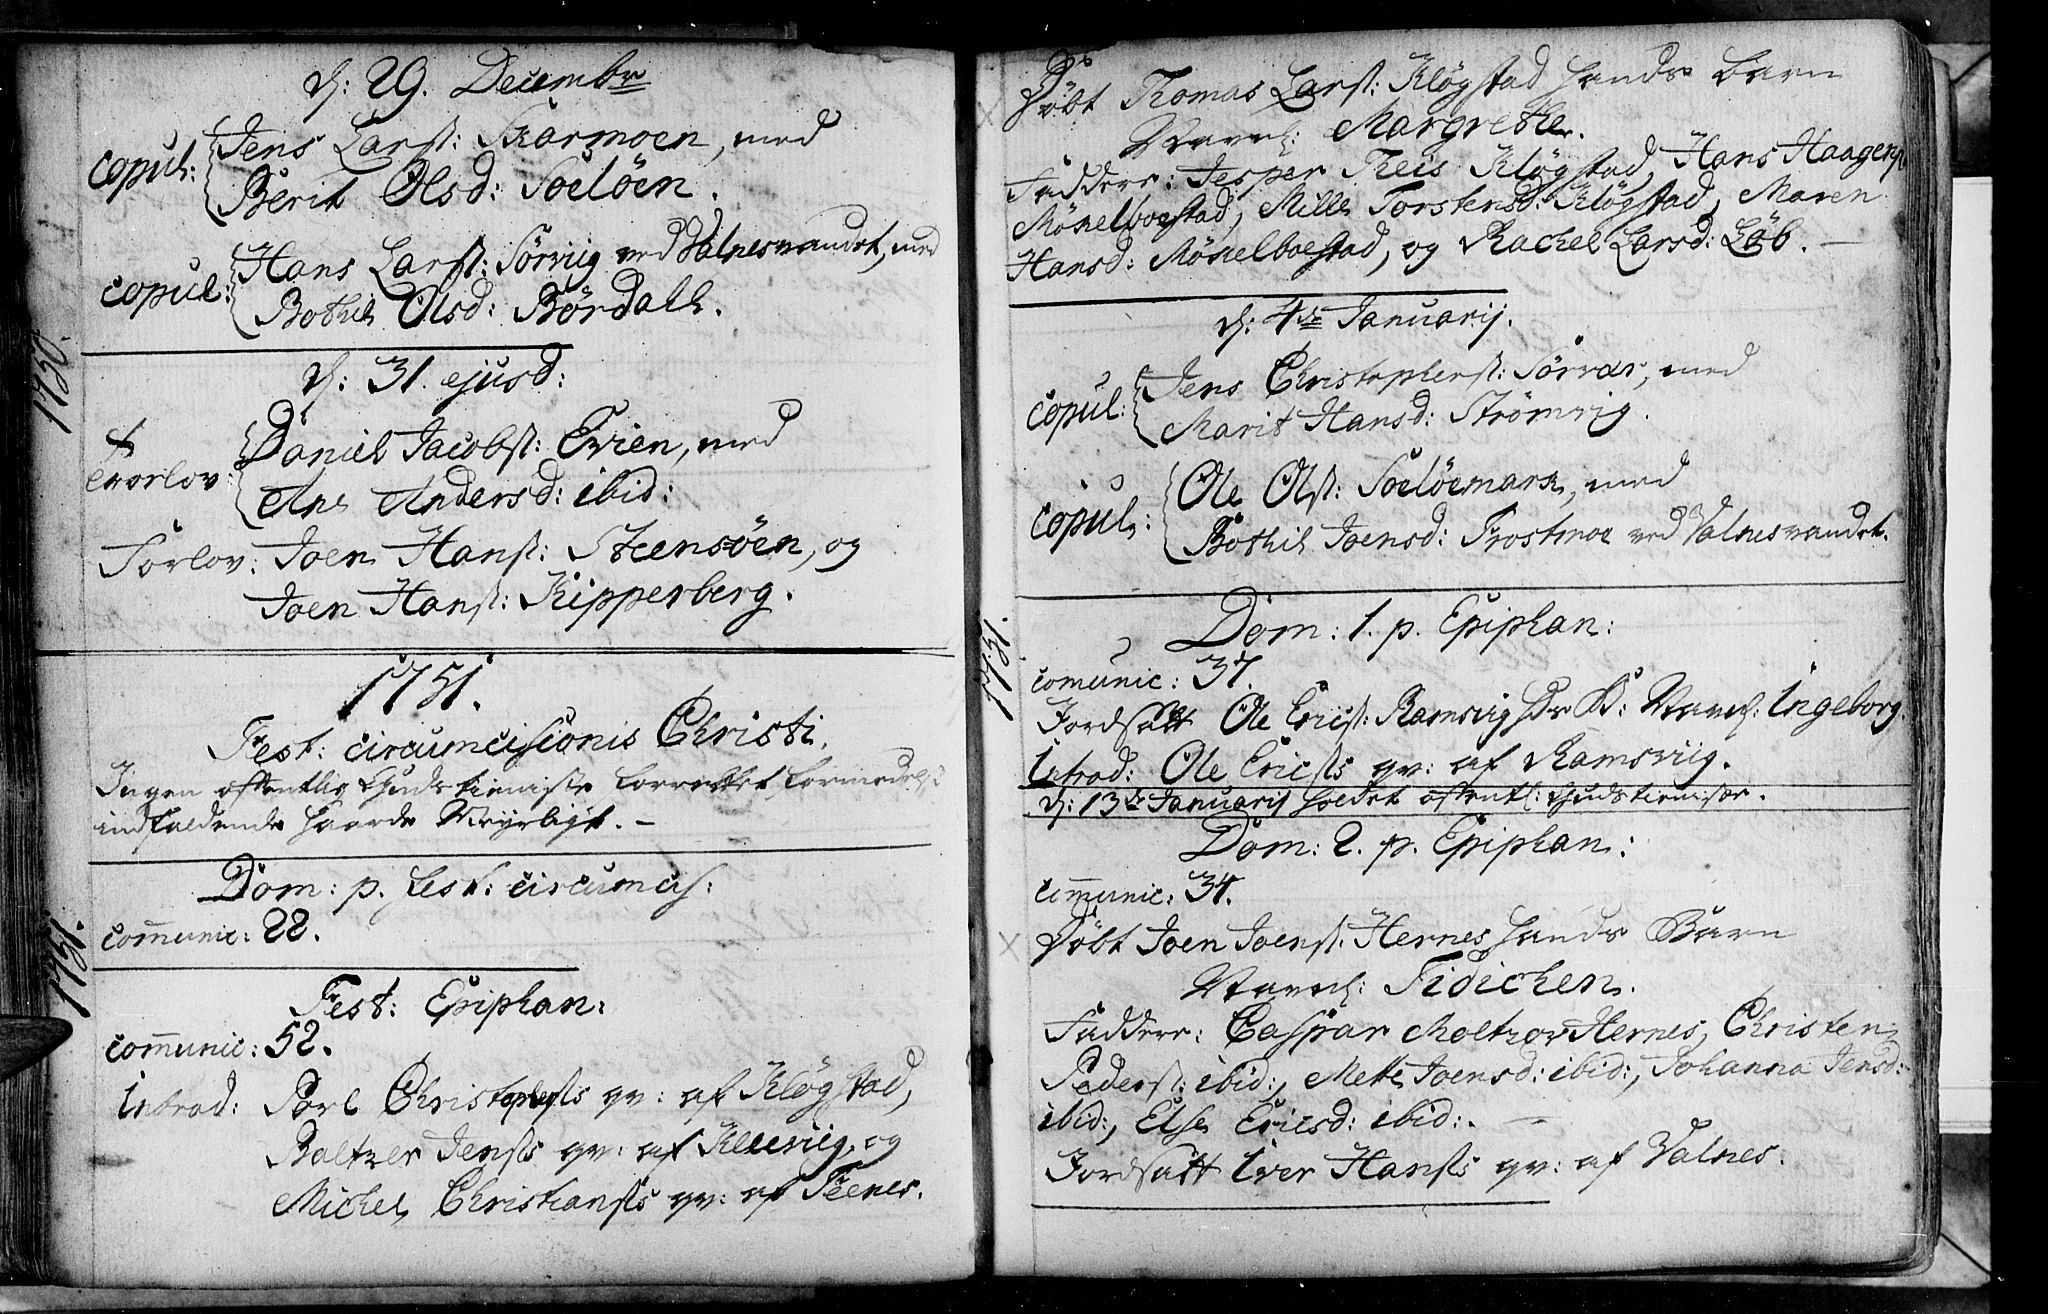 d: 29. Decembr
copul: Jens Larss: Skarmoen, med
Berit Olsd: Soeløen.
copul: Hans Larss: Sørviig ved Valnesvandet, med
Bothil Olsd: Børdahl.
1750.
d: 31. ejusd:
Trorlov: Daniel Jacobss: Evien, med
Ane Andersd: ibid:
Forlov: Joen Hanss: Steensøen, og
Joen Hanss: Kipperberg.
1751.
Fest: circumcisionis Christi.
Ingen offentlig Guds tieniste forrettet formedelst
indfaldende haarde Veyrligt. –
Dom: p. fest: circumcis:
communic: 22.
1751.
Fest: Epiphan:
communic: 52.
Introd: Povl Christophersts qv: af Kløgstad,
Baltzer Jensts qv: af Kleeviig, og
Michel Christiansts qv: af Feenes.
Døbt Tomas Larss: Kløgstad hands barn
Navnl: Margrethe.
Faddere: Jesper Reis Kløgstad, Hans Haagens:
Mørkelboestad, Mille Torstensd: Kløgstad, Maren
Hansd: Mørkelboestad, og Rachel Larsd: Løb. –
d: 4de Januarij.
copul: Jens Christophers: Sørvær, med
Marit Hansd: Strømvig.
copul: Ole Olss: Soeløemark, med
Bothil Joensd: Frostmoe ved Valnesvandet.
1751.
Dom: 1. p. Epiphan:
comunic: 37.
Jordsatt Ole Ericss: Ramsvig Navnl: Ingeborg.
Introd: Ole Ericsts qv: af Ramsviig.
d: 13de Januarij holdet offentl: Gudstienisse.
Dom: 2. p. Epiphan:
communic: 34.
Døbt Joen Joenss: Hernes hands Barn
Navnl: Fidichen.
Faddere: Caspar Moltzov Hernes, Christen
Pederss: ibid:, Mette Joensd: ibid:, Johanna Jensd:
ibid:, Else Ericsd: ibid:. –
Jordsatt Iver Hansts qv: af Valnes.